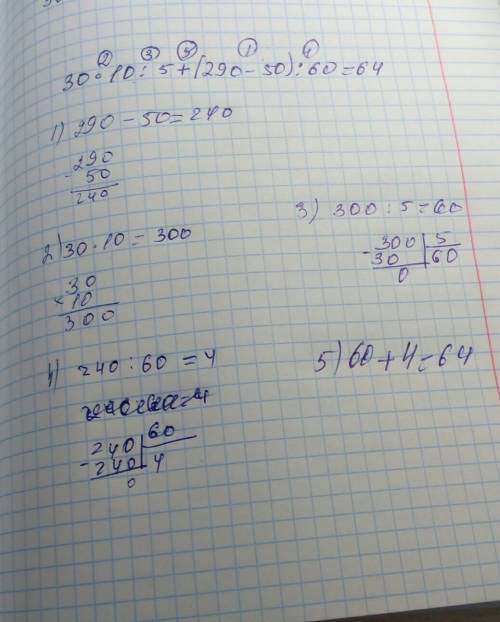 ② ③ ⑤ ① ④
30 · 10 : 5 + (290 - 50) : 60 = 64
1) 290 - 50 = 240
- 290
50
240
2) 30 · 10 = 300
× 30
10
300
3) 300 : 5 = 60
- 300 | 5
30 | 60
0
4) 240 : 60 = 4
- 240 | 60
240 | 4
0
5) 60 + 4 = 64